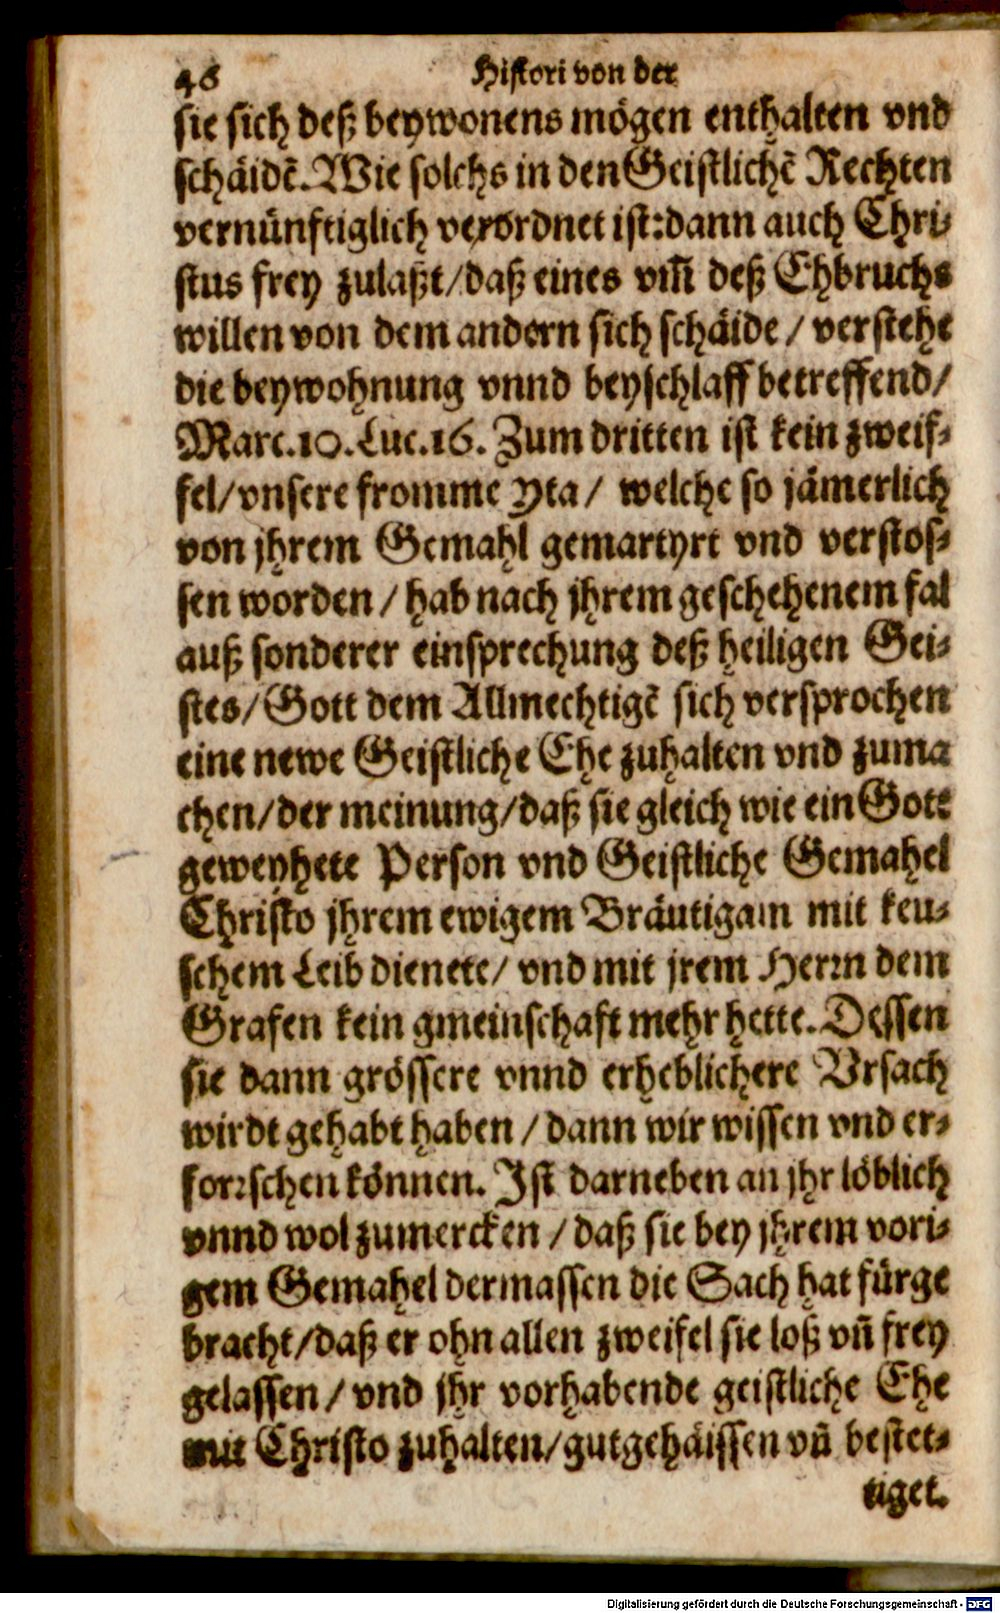 46 Histori von der
sie sich deß beywonens mögen enthalten vnd
schäidẽ. Wie solchs in den Geistlichẽ Rechten
vernünftiglich verordnet ist: dann auch Chri-
stus frey zulaßt/ daß eines vm̃ deß Ehbruchs
willen von dem andern sich schäide/ verstehe
die beywohnung vnnd beyschlaff betreffend/
Marc. 10. Luc. 16. Zum dritten ist kein zweif-
fel/ vnsere fromme Yta/ welche so jämerlich
von jhrem Gemahl gemartyrt vnd verstos-
sen worden/ hab nach jhrem geschehenem fal
auß sonderer einsprechung deß heiligen Gei-
stes/ Gott dem Allmechtigẽ sich versprochen
eine newe Geistliche Ehe zuhalten vnd zuma
chen/ der meinung/ daß sie gleich wie ein Gott
geweyhete Person vnd Geistliche Gemahel
Christo jhrem ewigem Bräutigam mit keu-
schem Leib dienete/ vnd mit jrem Herrn dem
Grafen kein gmeinschaft mehr hette. Dessen
sie dann grössere vnnd erheblichere Vrsach
wirdt gehabt haben/ dann wir wissen vnd er-
forrschen können. Ist darneben an jhr löblich
vnnd wol zumercken/ daß sie bey jhrem vori-
gem Gemahel dermassen die Sach hat fürge
bracht/ daß er ohn allen zweifel sie loß vñ frey
gelassen/ vnd jhr vorhabende geistliche Ehe
mit Christo zuhalten/ gutgehäissen vñ bestet-
tiget.
Digitalisierung gefördert durch die Deutsche Forschungsgemeinschaft - DFG